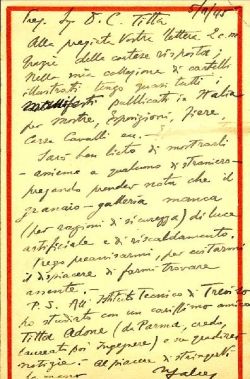 5/11/45
Preg. Sig D. C. Titta
Alla pregiata Vostra lettera
grazie della cortese risposta;
Nella mia collezione di cartelli
illustrati tengo quasi tutti i
pubblicati in Italia
per Mostre, Esposizioni, Fiere
Corse Cavalli ecc. -
Sarò ben lieto di mostrarli
- assieme a qualcuno di straniero -
pregando prender nota che il
granaio - galleria manca
(per ragioni di sicurezza) di luce
artificiale e di riscaldamento.
Prego preavvisarmi, per evitarmi
il dispiacere di farmi trovare
assente. -
P. S. All'Istituto Tecnico di Treviso
ho studiato con un carissimo amico
Titta Adone (di Parma, credo,
laureato poi Ingegnere) e ne gradirei
notizie. - Al piacere di stringerLe
la mano